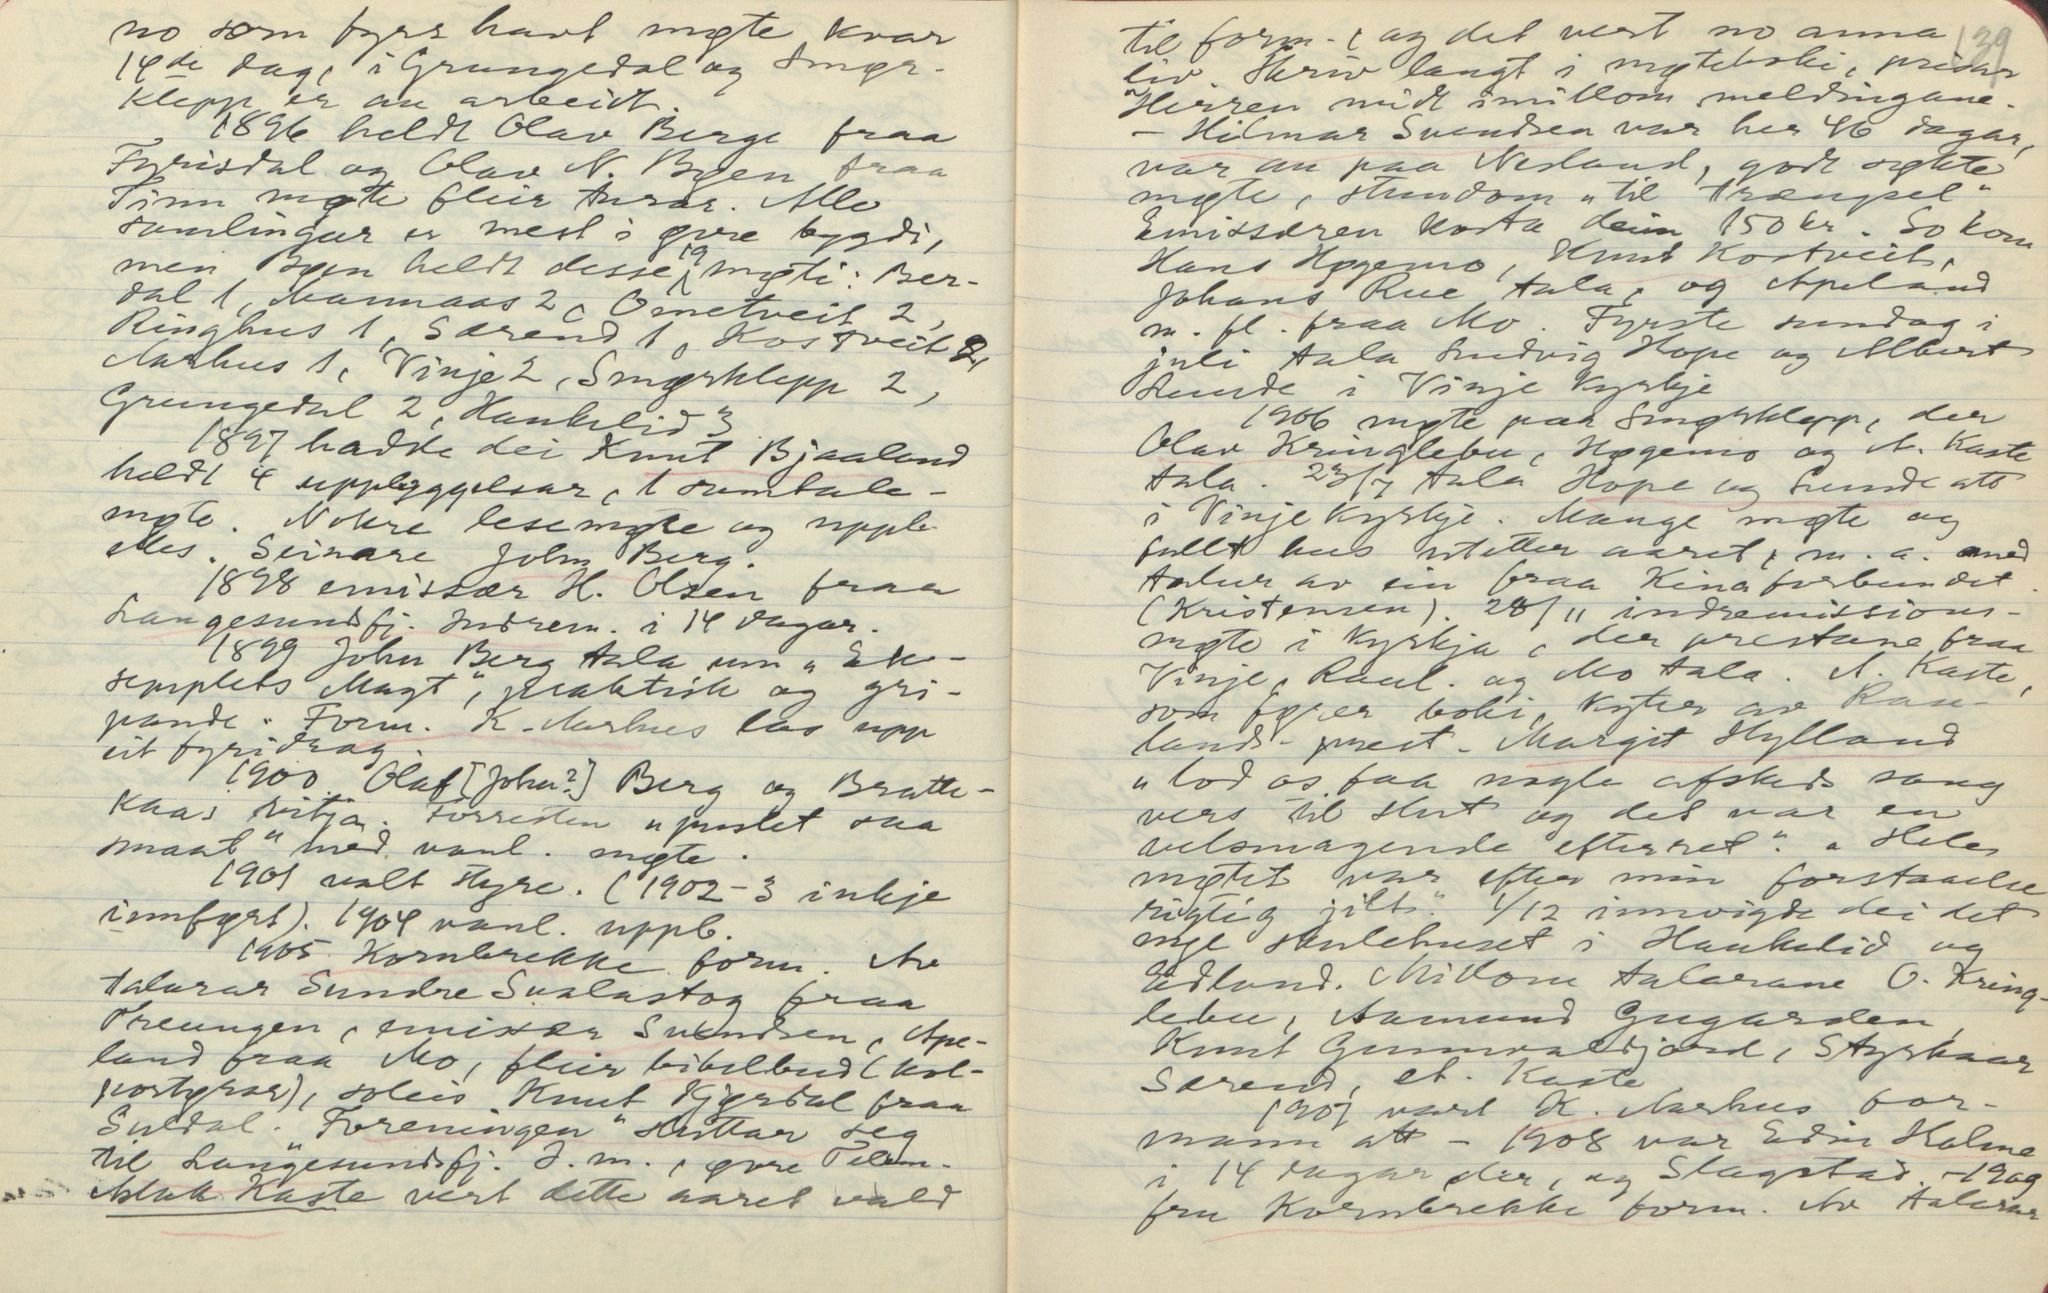 no som fyrr havt møte kvar
14de dag, i Grungedal og Smør-
klepp er au arbeidt.
1896 heldt Olav Berge fraa
Fyrisdal og Olav N. Bøen fraa
Tinn møte fleir turar. Alle
samlingar er mest i øvre bygdi,
men Bøen heldt desse 19 møti: Ber-
dal 1, Mannaas 2, Ometveit 2,
Ringhus 1, Særend 1, Kostveit 2,
Aarhus 1, Vinje 2, Smørklepp 2,
Grungedal 2, Haukelid 3
1897 hadde dei Knut Bjaaland
heldt 4 uppbyggelsar, 1 samtale-
møte. Nokre lesemøte og uppb
elles. Seinare John Berg.
1898 emissær H. Olsen fraa
Langesundsfj. Indrem. i 14 dagar.
1899 John Berg tala um "Ek-
semplets Magt", praktisk og gri-
pande. Form. K. Aarhus las upp
eit fyridrag.
1900. Olaf [John?] Berg og Bratte-
kaas vitja. Forresten "puslet saa
smaat" med vanl. møte.
1901 valt styre. (1902-3 inkje
innført). 1904 vanl. uppb.
1905 Kornbrekke form. Av
talarar Sundre Svalastog fraa
Treungen, emissær Svendsen, Ape-
land fraa Mo, fleir bibelbud (kol-
portørar), soleis Knut Kjørdal fraa
Suldal. "Foreningen" sluttar seg
til Langesundsfj. I.m., øvre Telem.
Aslak Kaste vert dette aaret vald
139
til form., og det vert no anna
liv. Skriv langt i møteboki, prisar
Herren midt imillom meldingane.
- Hilmar Svendsen var her 46 dagar,
var au paa Nesland, godt søkte
møte, stundom "til trængsel"
Emissæren kosta deim 150 kr. So kom
Hans Høgemo, Knut Kostveit,
Johans Rue tala, og Apeland
m. fl. fraa Mo. Fyrste sundag i
juli tala Ludvig Hope og Albert
Lunde i Vinje kyrkje
1906 møte paa Smørklepp, der
Olav Kringlebu, Høgemo og A. Kaste
tala. 23/7 tala Hope og Lunde att
i Vinje kyrkje. Mange møte og
fullt hus utetter aaret, m. a. med
talar av ein fraa Kinaforbundet
(Kristensen). 28/11 indremissions-
møte i kyrkja, der prestane fraa
Vinje, Raul. og Mo tala. A. Kaste,
som fører boki, kyter av Rau-
lands-prest. Margit Hylland
"lod os faa nogle afskeds sang
vers til slut og det var en
velsmagende efterret". "Hele
møtet var efter min forstaaelse
rigtig jilt". 1/12 innvigde dei det
nye skulehuset i Haukelid og
Edland. Millom talarane O. Kring-
lebu, Aamund Gugarden,
Knut Gunnvaldjord, Styrkaar
Særend, A. Kaste
1907 vart K. Aarhus for-
mann att - 1908 var Edin Holme
i 14 dagar der, og Slagstad. - 1909
fru Kornbrekke form. Av talarar